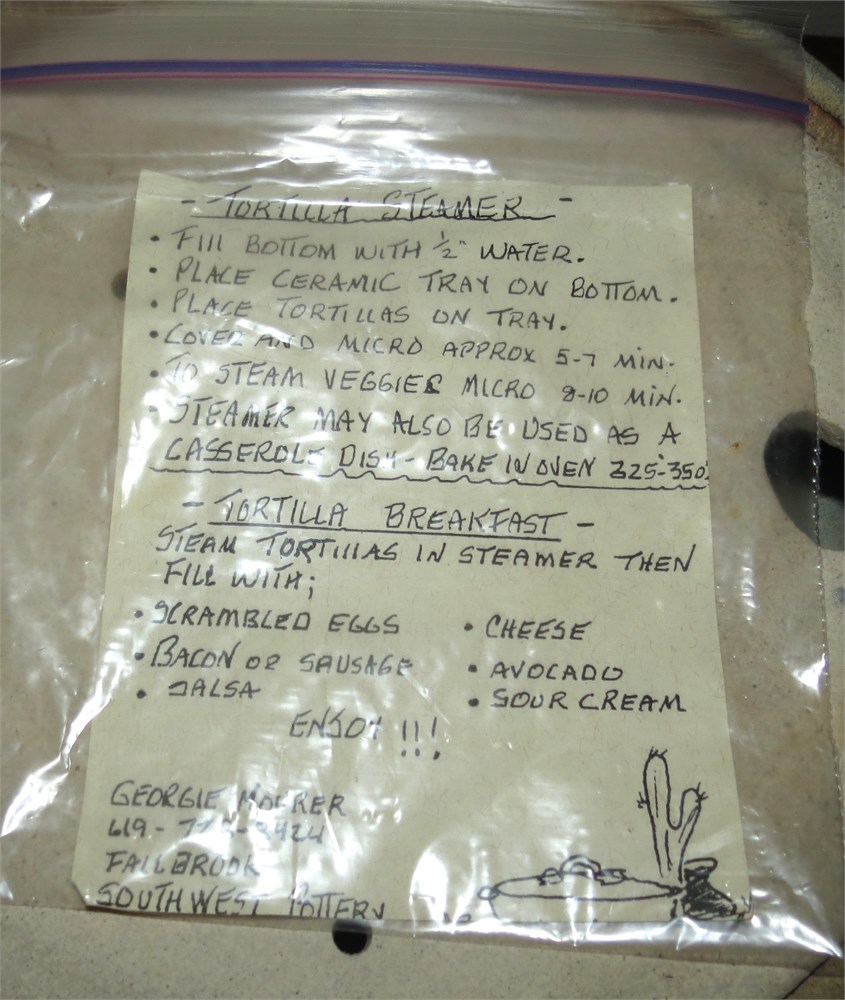 - TORTILLA STEAMER -
• FILL BOTTOM WITH ½" WATER.
• PLACE CERAMIC TRAY ON BOTTOM.
• PLACE TORTILLAS ON TRAY.
• COVER AND MICRO APPROX 5-7 MIN.
• TO STEAM VEGGIES MICRO 8-10 MIN.
• STEAMER MAY ALSO BE USED AS A
CASSEROLE DISH - BAKE IN OVEN 325°-350°
- TORTILLA BREAKFAST -
STEAM TORTILLAS IN STEAMER THEN
FILL WITH;
• SCRAMBLED EGGS • CHEESE
• BACON OR SAUSAGE • AVOCADO
• SALSA • SOUR CREAM
ENJOY !!!
GEORGIE
619-
FALLBROOK
SOUTHWEST POTTERY